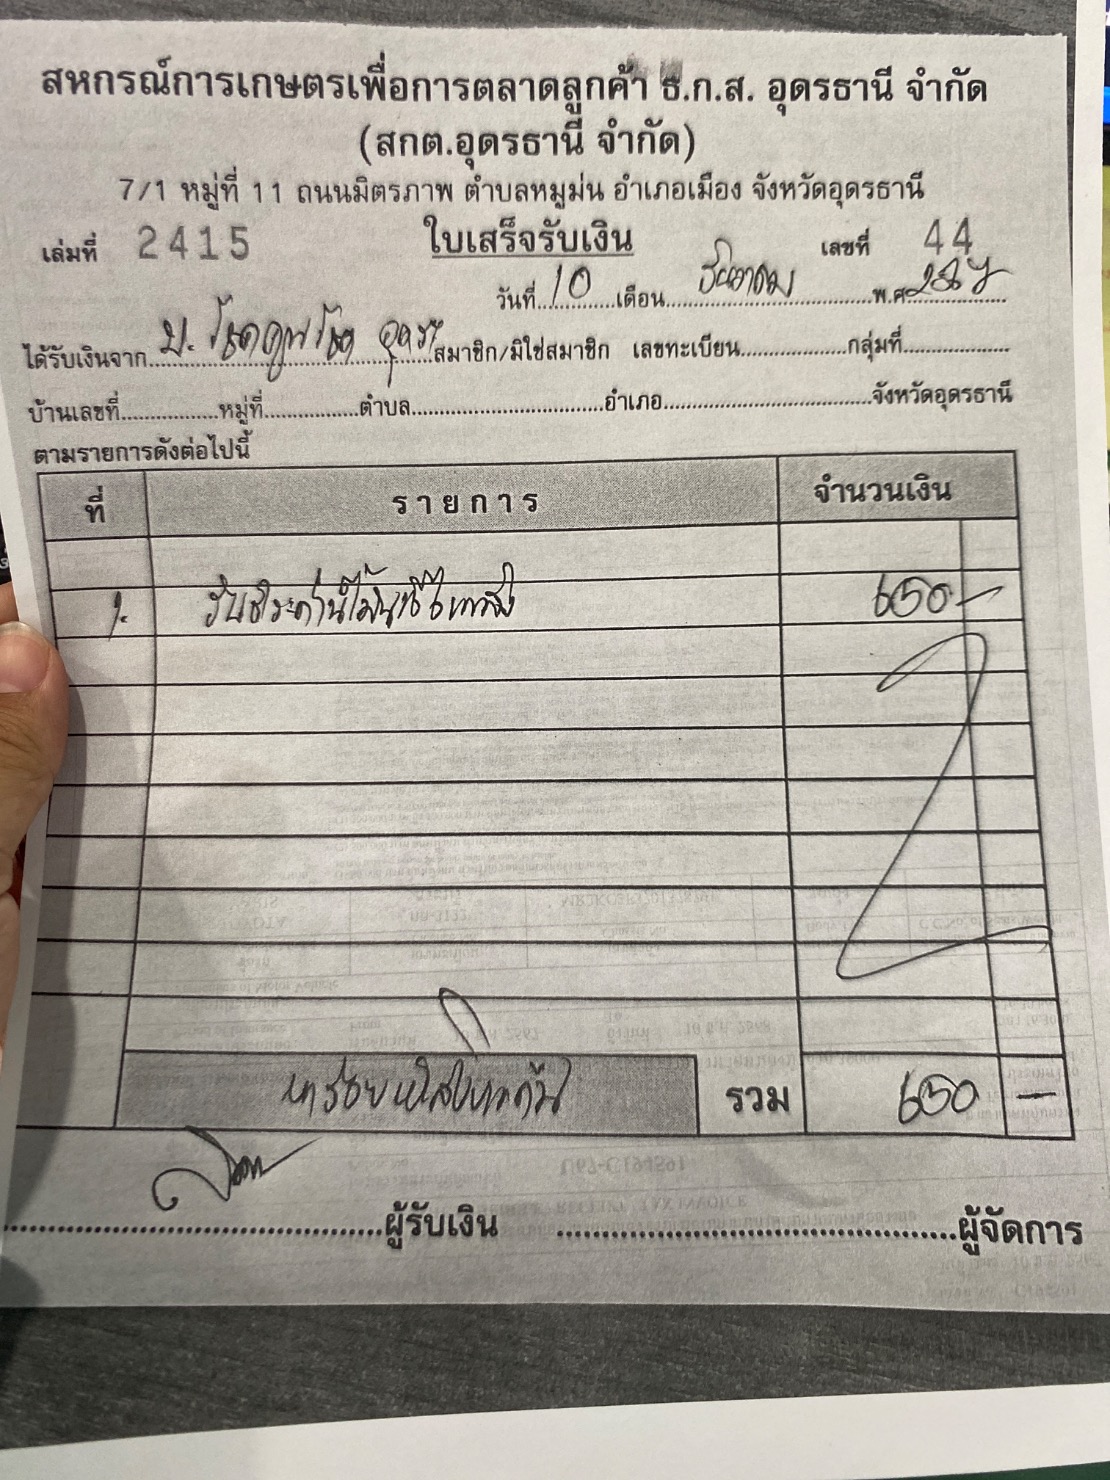 สหกรณ์การเกษตรเพื่อการตลาดลูกค้า ธ.ก.ส. อุดรธานี จำกัด
(สกต.อุดรธานี จำกัด)
7/1 หมู่ที่ 11 ถนนมิตรภาพ ตำบลหมูม่น อำเภอเมือง จังหวัดอุดรธานี
เล่มที่ 2415 ใบเสร็จรับเงิน เลขที่ 44
วันที่ 10 เดือน ธันวาคม พ.ศ. 2567
ได้รับเงินจาก บ. สมาชิก/มิใช่สมาชิก เลขทะเบียน กลุ่มที่
บ้านเลขที่ หมู่ที่ ตำบล อำเภอ จังหวัดอุดรธานี
ตามรายการดังต่อไปนี้
ที่ รายการ จำนวนเงิน
1. รับชำระค่าน้ำมัน 650 -
หกร้อยห้าสิบบาทถ้วน รวม 650 -
ผู้รับเงิน ผู้จัดการ